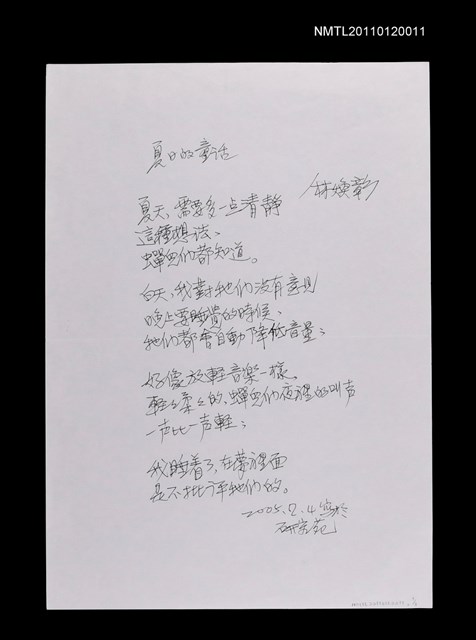 NMTL20110120011
夏日的童话
林煥彰
夏天、需要多一点清静
這種想法、
蟬兒们都知道。
白天、我對牠们没有意見
晚上要睡覺的時候、
牠们都會自動降低音量；
好像放輕音樂一樣。
輕々柔々的、蟬兒们夜裡的叫声
一声比一声輕；
我睡着了、在夢裡面
是不批评牠们的。
2005.2.4 寫於
研究苑